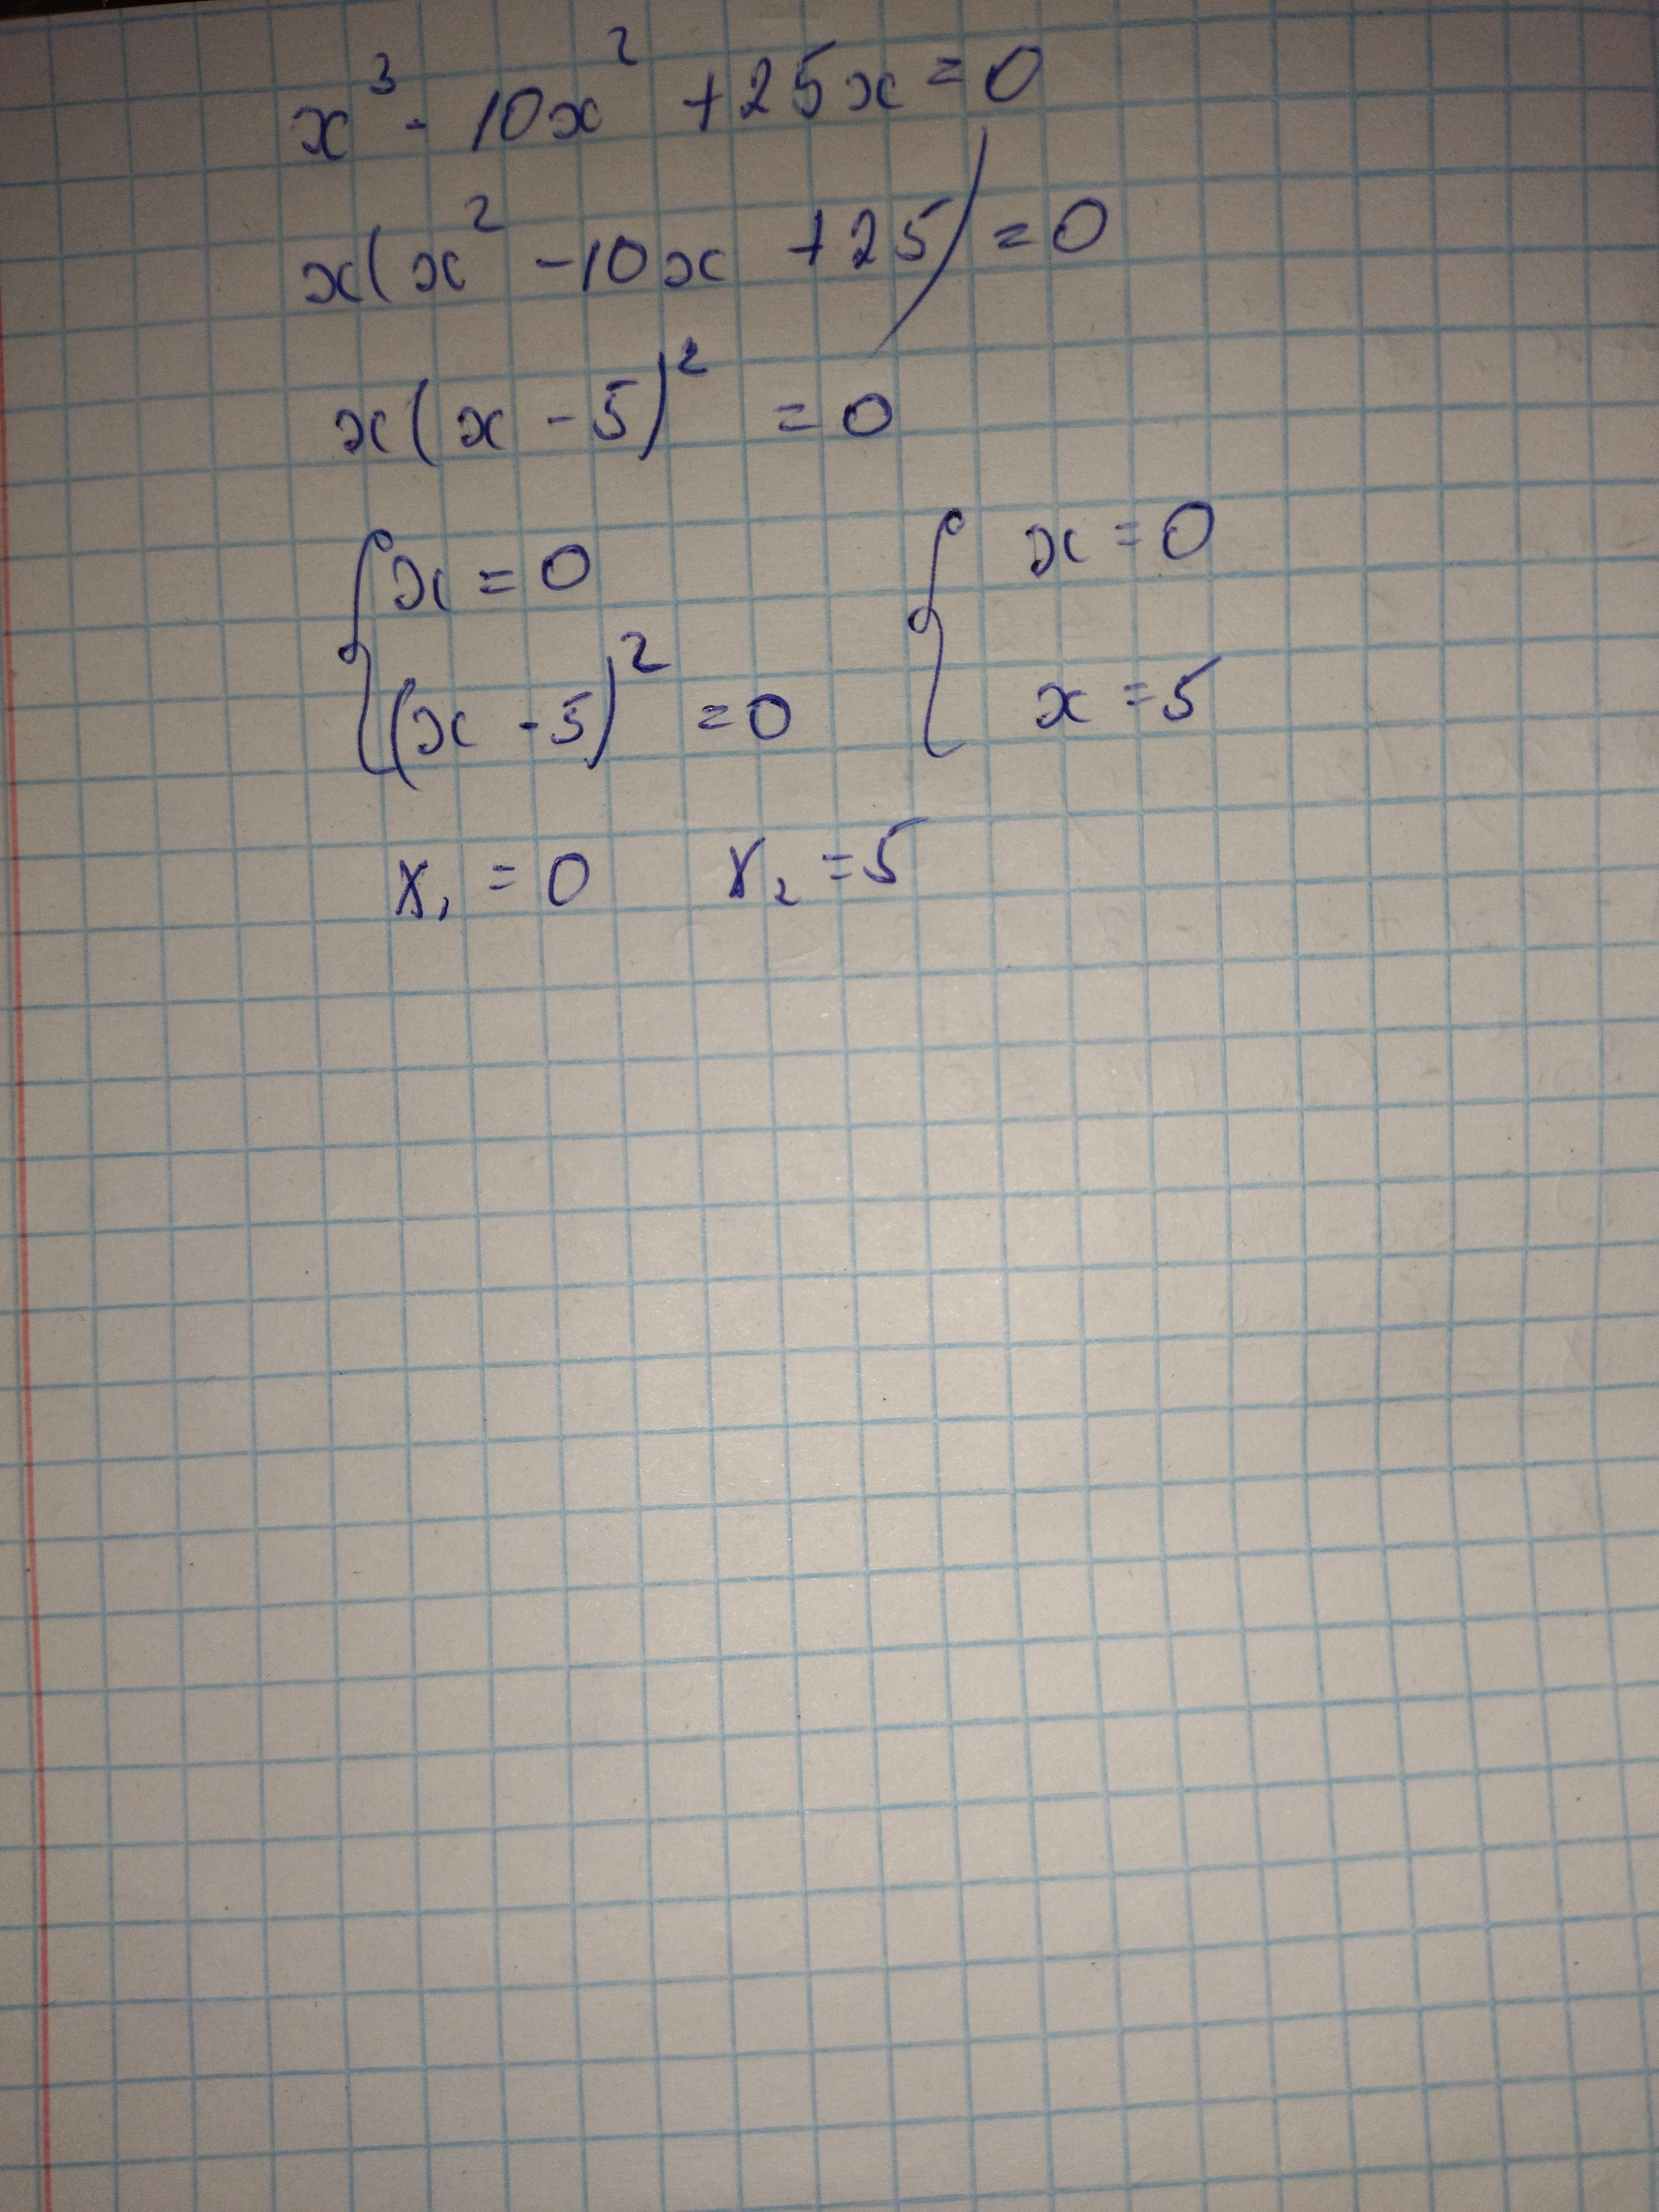 x³ - 10x² + 25x = 0
x(x² - 10x + 25) = 0
x(x - 5)² = 0
{ x = 0 { x = 0
(x - 5)² = 0 x = 5
x₁ = 0 x₂ = 5